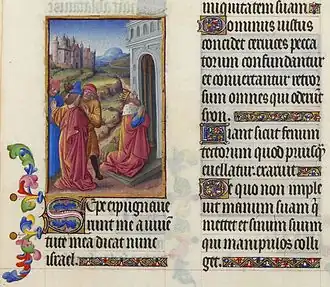 Sepe expugnaue
runt me a iuuen
tute mea dicat nunc
israel.
iniquitatem suam
Dominus iustus
concidet ceruices pecca
torum confundantur
et conuertantur retror
sum omnes qui oderūt
syon.
Fiant sicut fenum
tectorum quod priusq̄
euellatur exaruit
De quo non imple
uit manum suam q̄
metet et sinum suum
qui manipulos colli
get.